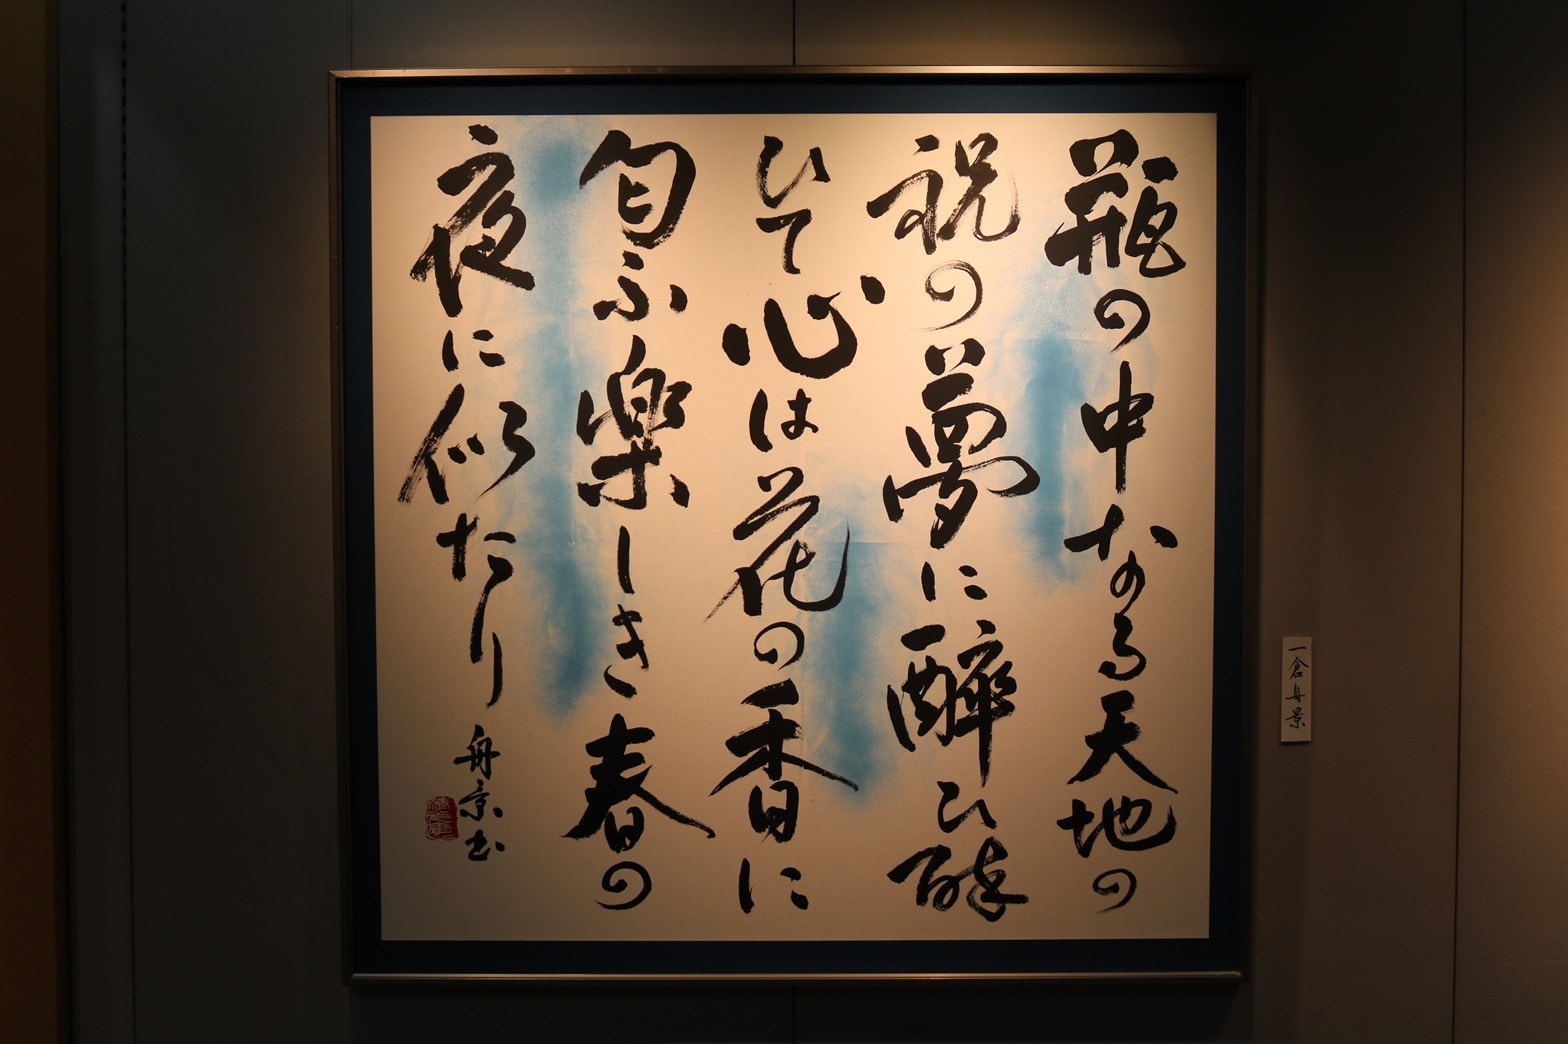 瓶の中なる天地の
祝の夢に醉ひ醉
ひて心は花の香に
匂ふ楽しき春の
夜に似たり
舟景書
一倉舟景